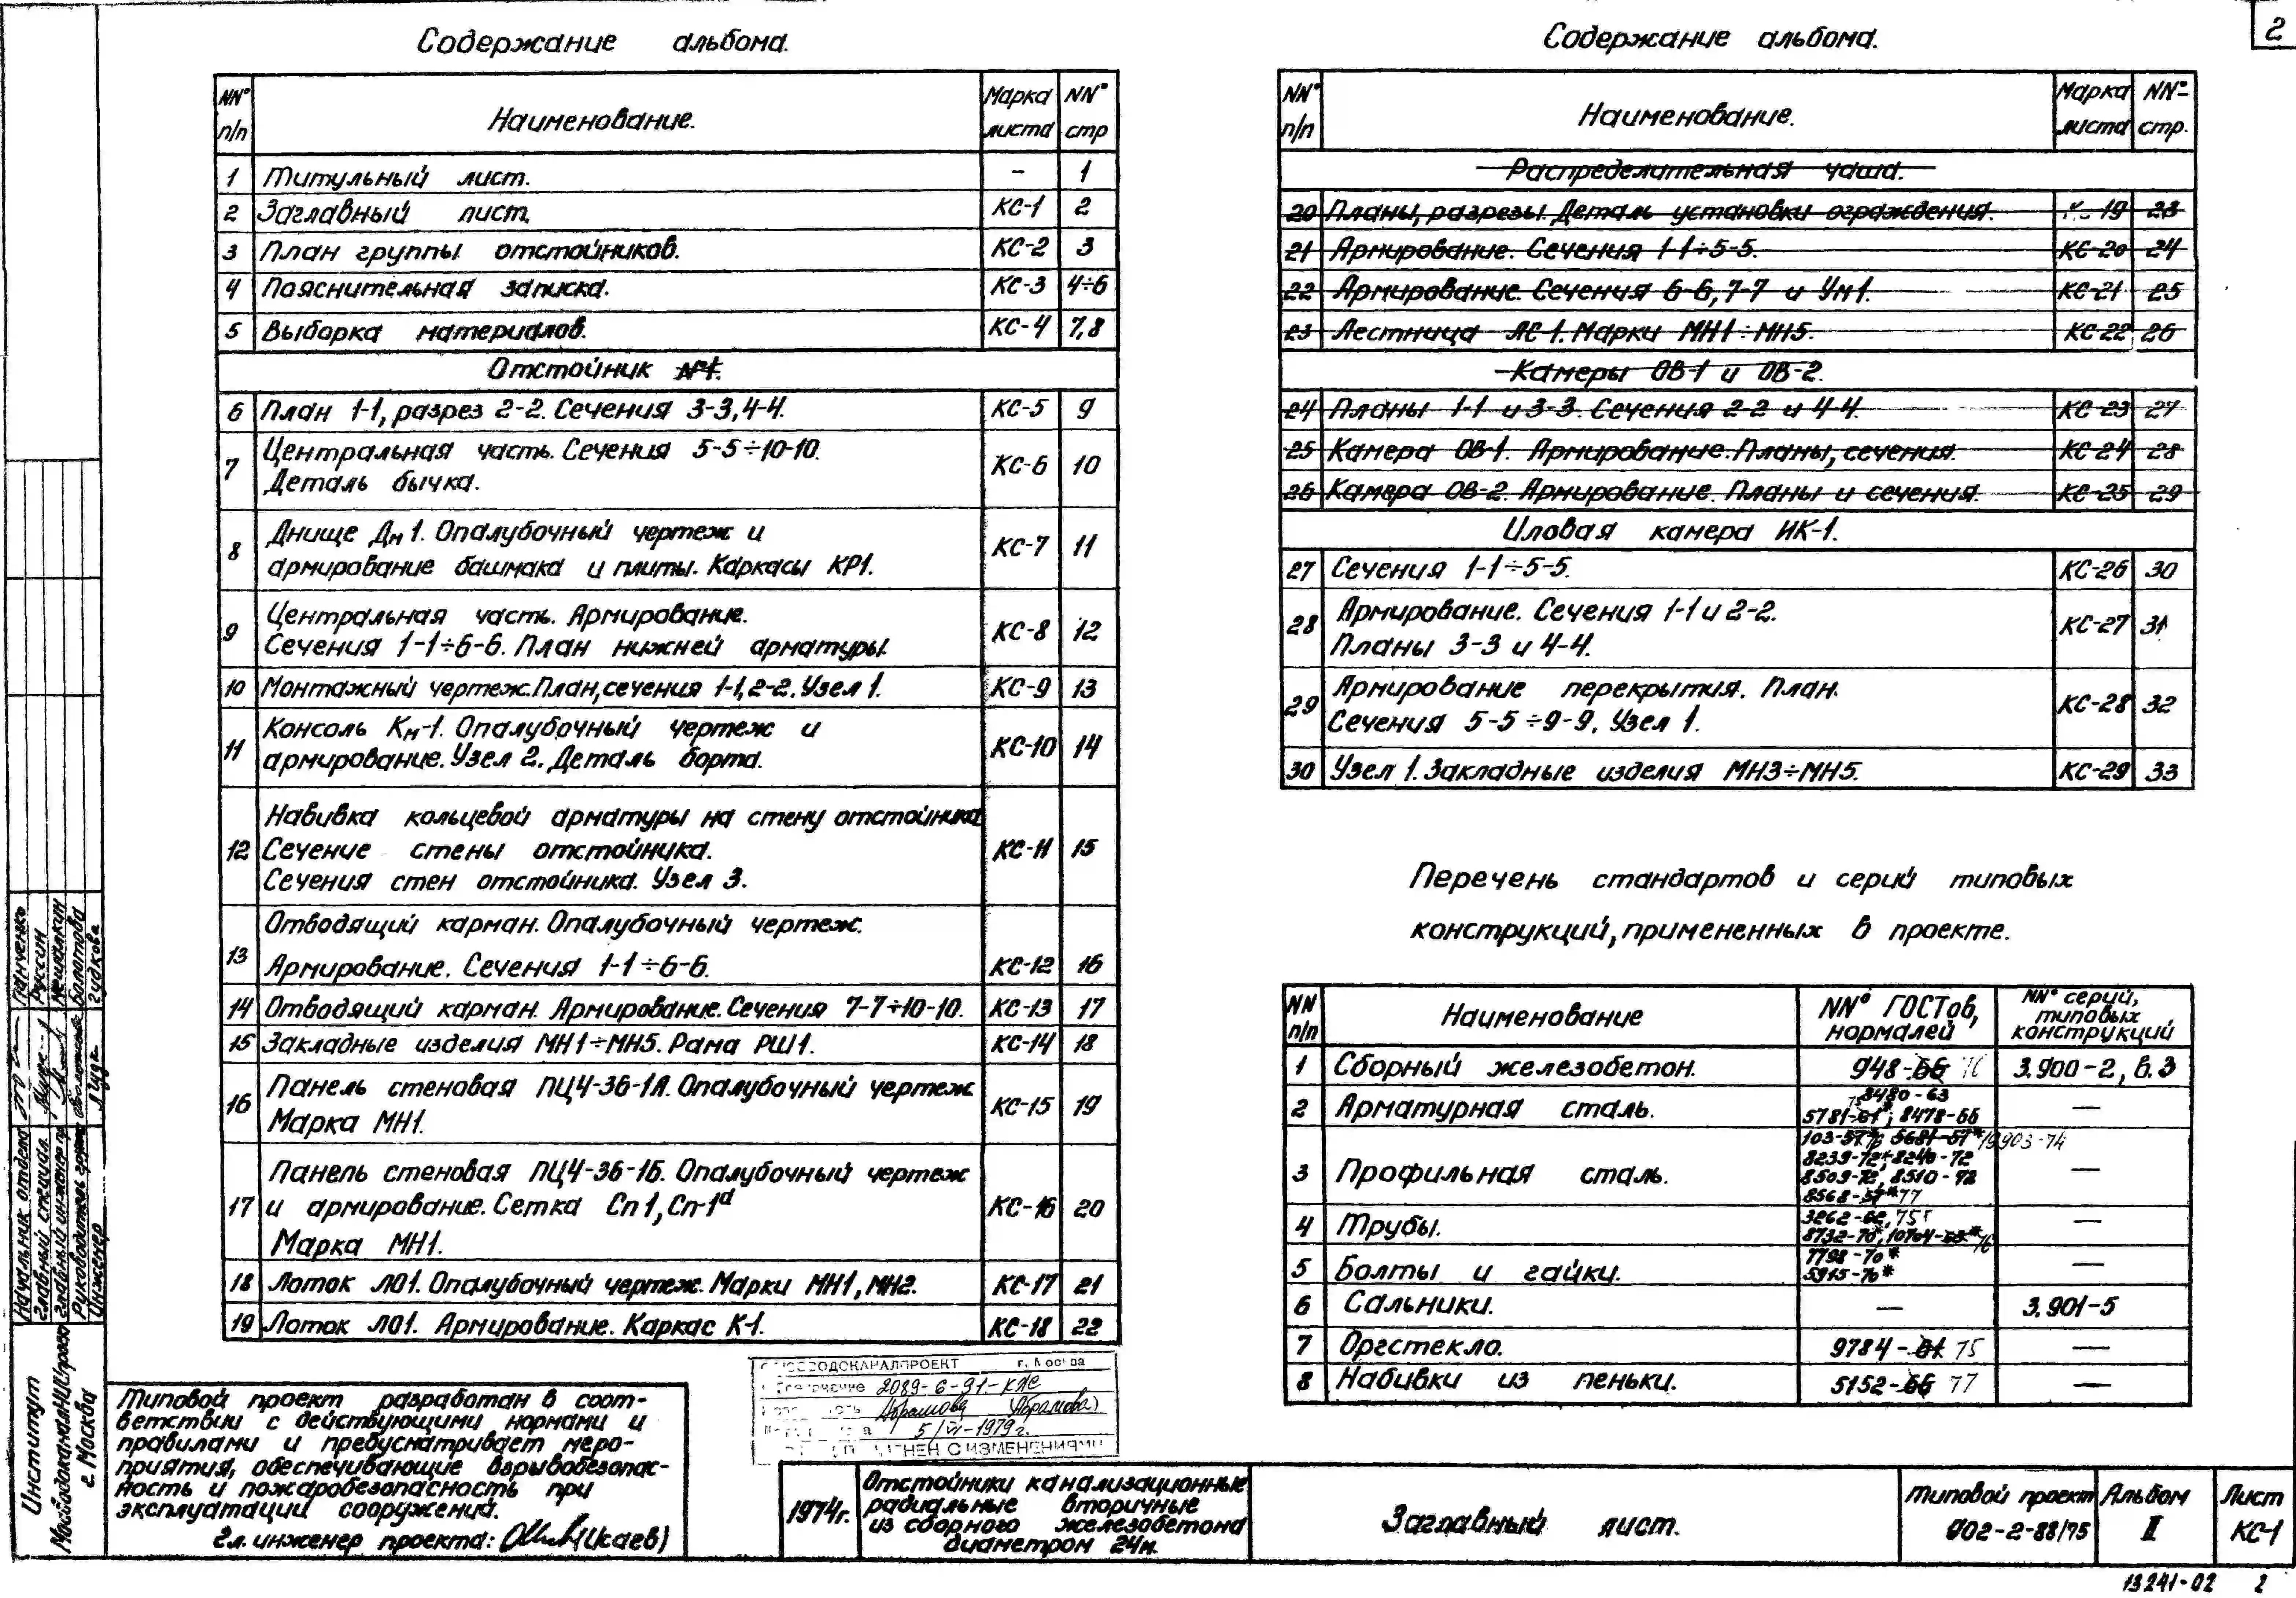 2
Содержание альбома.
NN° п/п Наименование. Марка листа NN° стр
1 Титульный лист. - 1
2 Заглавный лист. КС-1 2
3 План группы отстойников. КС-2 3
4 Пояснительная записка. КС-3 4÷6
5 Выборка материалов. КС-4 7,8
Отстойник №1.
6 План 1-1, разрез 2-2. Сечения 3-3, 4-4. КС-5 9
7 Центральная часть. Сечения 5-5÷10-10.
Деталь бычка. КС-6 10
8 Днище Дм1. Опалубочный чертеж и
армирование башмака и плиты. Каркасы КР1. КС-7 11
9 Центральная часть. Армирование.
Сечения 1-1÷6-6. План нижней арматуры. КС-8 12
10 Монтажный чертеж. План, сечения 1-1, 2-2. Узел 1. КС-9 13
11 Консоль Км-1. Опалубочный чертеж и
армирование. Узел 2. Деталь борта. КС-10 14
12 Навивка кольцевой арматуры на стену отстойника
Сечение стены отстойника.
Сечения стен отстойника. Узел 3. КС-11 15
13 Отводящий карман. Опалубочный чертеж.
Армирование. Сечения 1-1÷6-6. КС-12 16
14 Отводящий карман. Армирование. Сечения 7-7÷10-10. КС-13 17
15 Закладные изделия МН1÷МН5. Рама РШ1. КС-14 18
16 Панель стеновая ПЦ4-36-1А. Опалубочный чертеж
Марка МН1. КС-15 19
17 Панель стеновая ПЦ4-36-1Б. Опалубочный чертеж
и армирование. Сетка Сп1, Сп-1а
Марка МН1. КС-16 20
18 Лоток ЛО1. Опалубочный чертеж. Марки МН1, МН2. КС-17 21
19 Лоток ЛО1. Армирование. Каркас К-1. КС-18 22
Содержание альбома.
NN° п/п Наименование. Марка листа NN° стр.
Распределительная чаша.
20 Планы, разрезы. Деталь установки ограждения. 19 23
21 Армирование. Сечения 1-1÷5-5. КС-20 24
22 Армирование. Сечения 6-6, 7-7 и Ум1. КС-21 25
23 Лестница ЛС-1. Марки МН1÷МН5. КС-22 26
Камеры ОВ-1 и ОВ-2.
24 Планы 1-1 и 3-3. Сечения 2-2 и 4-4. КС-23 27
25 Камера ОВ-1. Армирование. Планы, сечения. КС-24 28
26 Камера ОВ-2. Армирование. Планы и сечения. КС-25 29
Иловая камера ИК-1.
27 Сечения 1-1÷5-5. КС-26 30
28 Армирование. Сечения 1-1 и 2-2.
Планы 3-3 и 4-4. КС-27 31
29 Армирование перекрытия. План.
Сечения 5-5÷9-9. Узел 1. КС-28 32
30 Узел 1. Закладные изделия МН3÷МН5. КС-29 33
Перечень стандартов и серий типовых
конструкций, примененных в проекте.
NN п/п Наименование NN° ГОСТов, нормалей NN° серий, типовых конструкций
1 Сборный железобетон. 948-66 76 3.900-2, в.3
2 Арматурная сталь. 8480-63
5781-61* 75; 8478-66 —
3 Профильная сталь. 103-57* 76 5681-57* 19903-74
8239-72* 8240-72
8509-72, 8510-72
8568-57* 77 —
4 Трубы. 3262-62, 75
8732-70*, 10704-63* 76 —
5 Болты и гайки. 7798-70*
5915-70* —
6 Сальники. — 3.901-5
7 Оргстекло. 9784-61 75 —
8 Набивки из пеньки. 5152-66 77 —
Начальник отдела Панченко
Главный специал. Руссин
Главный инженер пр. Мешалкин
Руководитель группы Болотова
Инженер Гудкова
Институт
МосводоканалНИИпроект
г. Москва
Типовой проект разработан в соот-
ветствии с действующими нормами и
правилами и предусматривает меро-
приятия, обеспечивающие взрывобезопас-
ность и пожаробезопасность при
эксплуатации сооружений.
Гл. инженер проекта: (Исаев)
СОЮЗВОДОКАНАЛПРОЕКТ г. Москва
2089-6-91-КЖС
Абрамова (Абрамова)
5/VI-1979г.
С ИЗМЕНЕНИЯМИ
1974г.
Отстойники канализационные
радиальные вторичные
из сборного железобетона
диаметром 24м.
Заглавный лист.
Типовой проект
902-2-88/75
Альбом
II
Лист
КС-1
13241-02 2